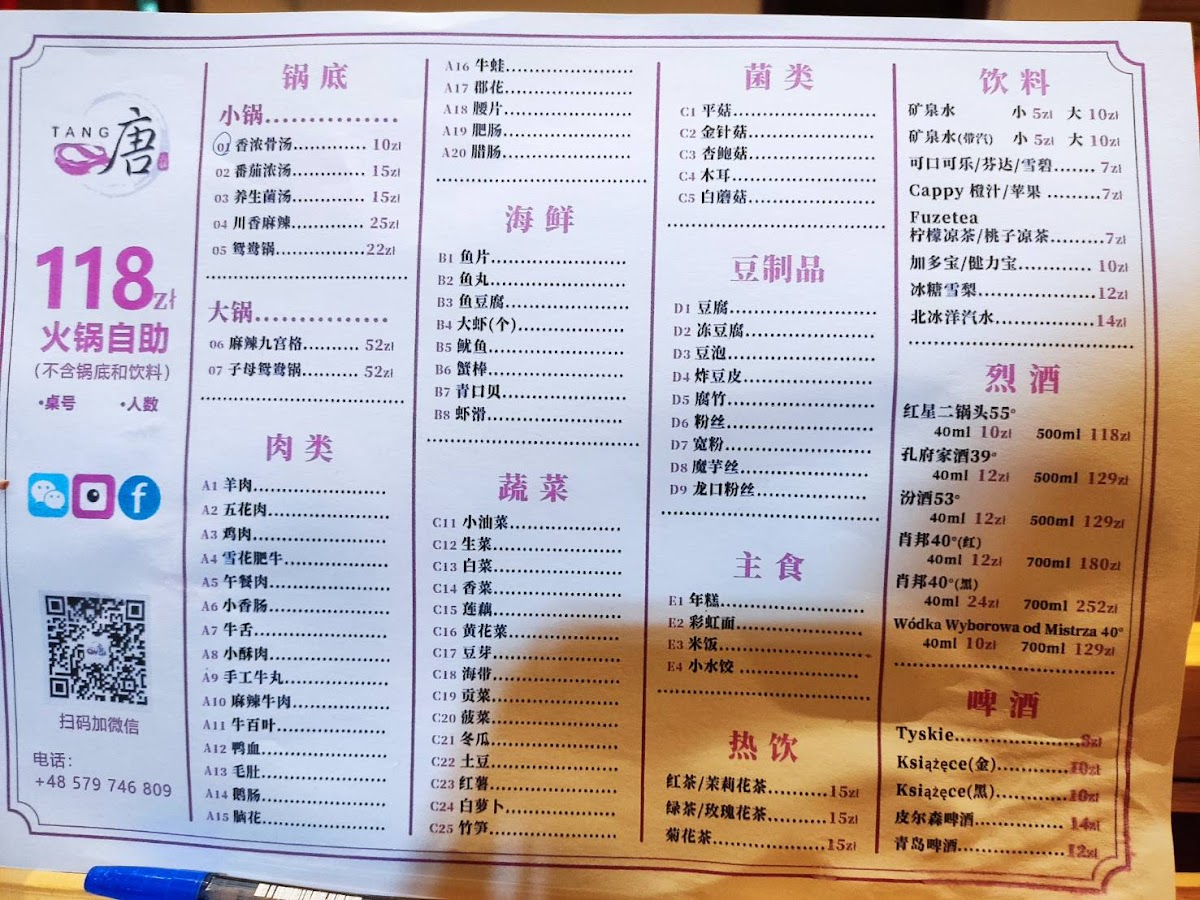 TANG 唐
118zł
火锅自助
(不含锅底和饮料)
•桌号 •人数
扫码加微信
电话:
+48 579 746 809
锅底
小锅...............
01 香浓骨汤............. 10zł
02 番茄浓汤............. 15zł
03 养生菌汤............. 15zł
04 川香麻辣............. 25zł
05 鸳鸯锅...............22zł
大锅...............
06 麻辣九宫格.......... 52zł
07 子母鸳鸯锅.......... 52zł
肉类
A1 羊肉
A2 五花肉
A3 鸡肉
A4 雪花肥牛
A5 午餐肉
A6 小香肠
A7 牛舌
A8 小酥肉
A9 手工牛丸
A10 麻辣牛肉
A11 牛百叶
A12 鸭血
A13 毛肚
A14 鹅肠
A15 脑花
A16 牛蛙
A17 郡花
A18 腰片
A19 肥肠
A20 腊肠
海鲜
B1 鱼片
B2 鱼丸
B3 鱼豆腐
B4 大虾(个)
B5 鱿鱼
B6 蟹棒
B7 青口贝
B8 虾滑
蔬菜
C11 小油菜
C12 生菜
C13 白菜
C14 香菜
C15 莲藕
C16 黄花菜
C17 豆芽
C18 海带
C19 贡菜
C20 菠菜
C21 冬瓜
C22 土豆
C23 红薯
C24 白萝卜
C25 竹笋
菌类
C1 平菇
C2 金针菇
C3 杏鲍菇
C4 木耳
C5 白蘑菇
豆制品
D1 豆腐
D2 冻豆腐
D3 豆泡
D4 炸豆皮
D5 腐竹
D6 粉丝
D7 宽粉
D8 魔芋丝
D9 龙口粉丝
主食
E1 年糕
E2 彩虹面
E3 米饭
E4 小水饺
热饮
红茶/茉莉花茶...........15zł
绿茶/玫瑰花茶...........15zł
菊花茶....................15zł
饮料
矿泉水 小 5zł 大 10zł
矿泉水(带汽) 小 5zł 大 10zł
可口可乐/芬达/雪碧....... 7zł
Cappy 橙汁/苹果 .........7zł
Fuzetea
柠檬凉茶/桃子凉茶.........7zł
加多宝/健力宝............ 10zł
冰糖雪梨...................12zł
北冰洋汽水................14zł
烈酒
红星二锅头55°
40ml 10zł 500ml 118zł
孔府家酒39°
40ml 12zł 500ml 129zł
汾酒53°
40ml 12zł 500ml 129zł
肖邦40°(红)
40ml 12zł 700ml 180zł
肖邦40°(黑)
40ml 24zł 700ml 252zł
Wódka Wyborowa od Mistrza 40°
40ml 10zł 700ml 129zł
啤酒
Tyskie....................8zł
Książęce(金).............10zł
Książęce(黑).............10zł
皮尔森啤酒............... 14zł
青岛啤酒..................12zł